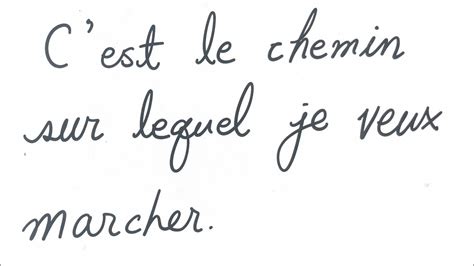 C'est le chemin
sur lequel je veux
marcher.